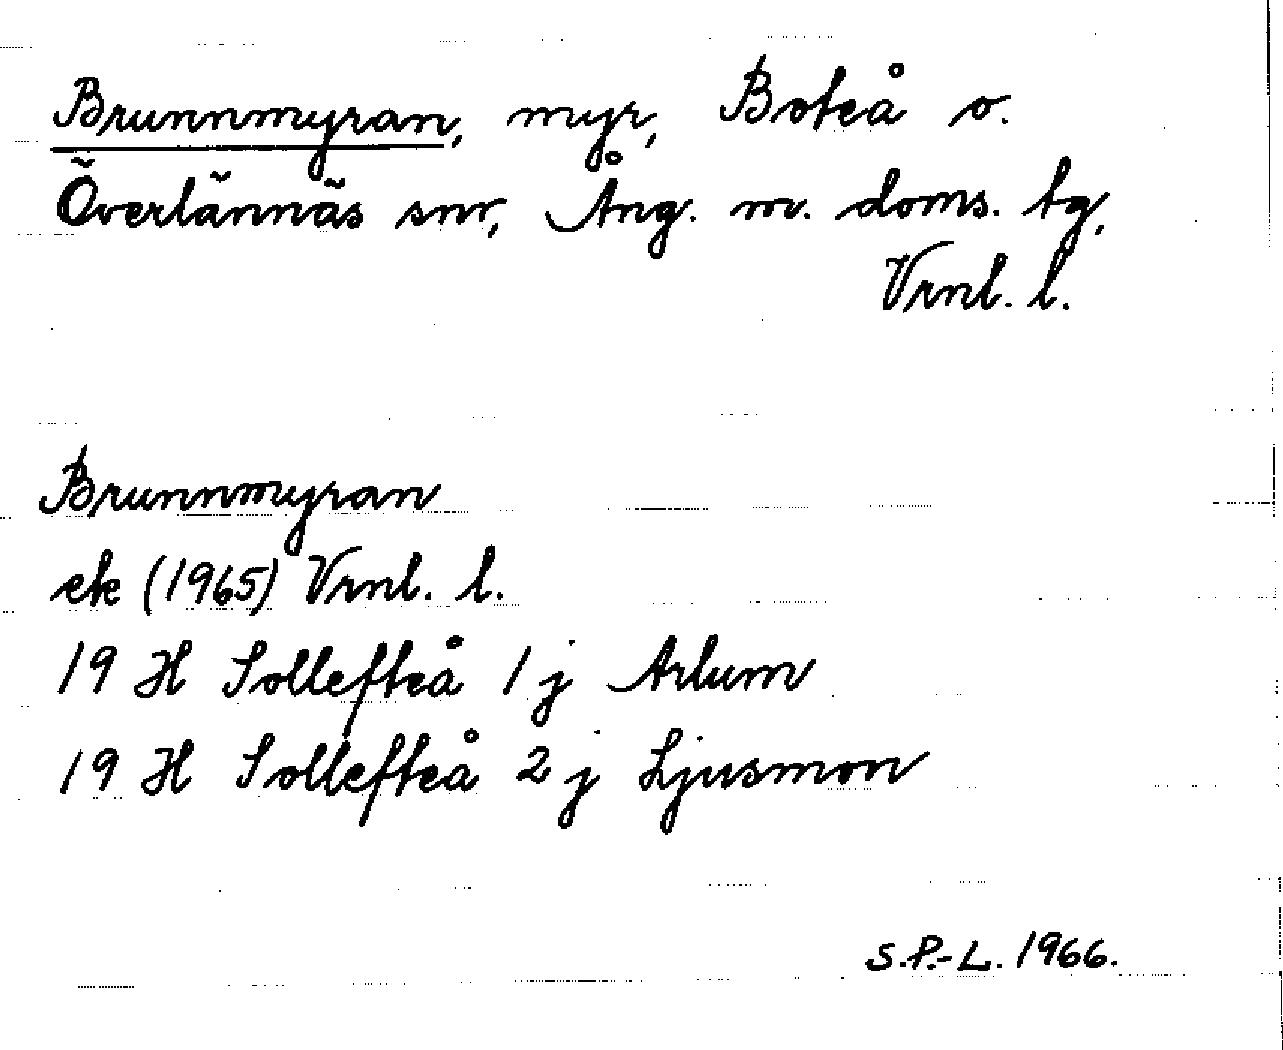 Brunnmyran, myr, Boteå o.
Överlännäs snr, Ång. m. doms. tg,
Vrnl. l.
Brunnmyran
ek (1965) Vrnl. l.
19 H Sollefteå 1 j Arlum
19 H Sollefteå 2 j Ljusmon
S.P.-L. 1966.